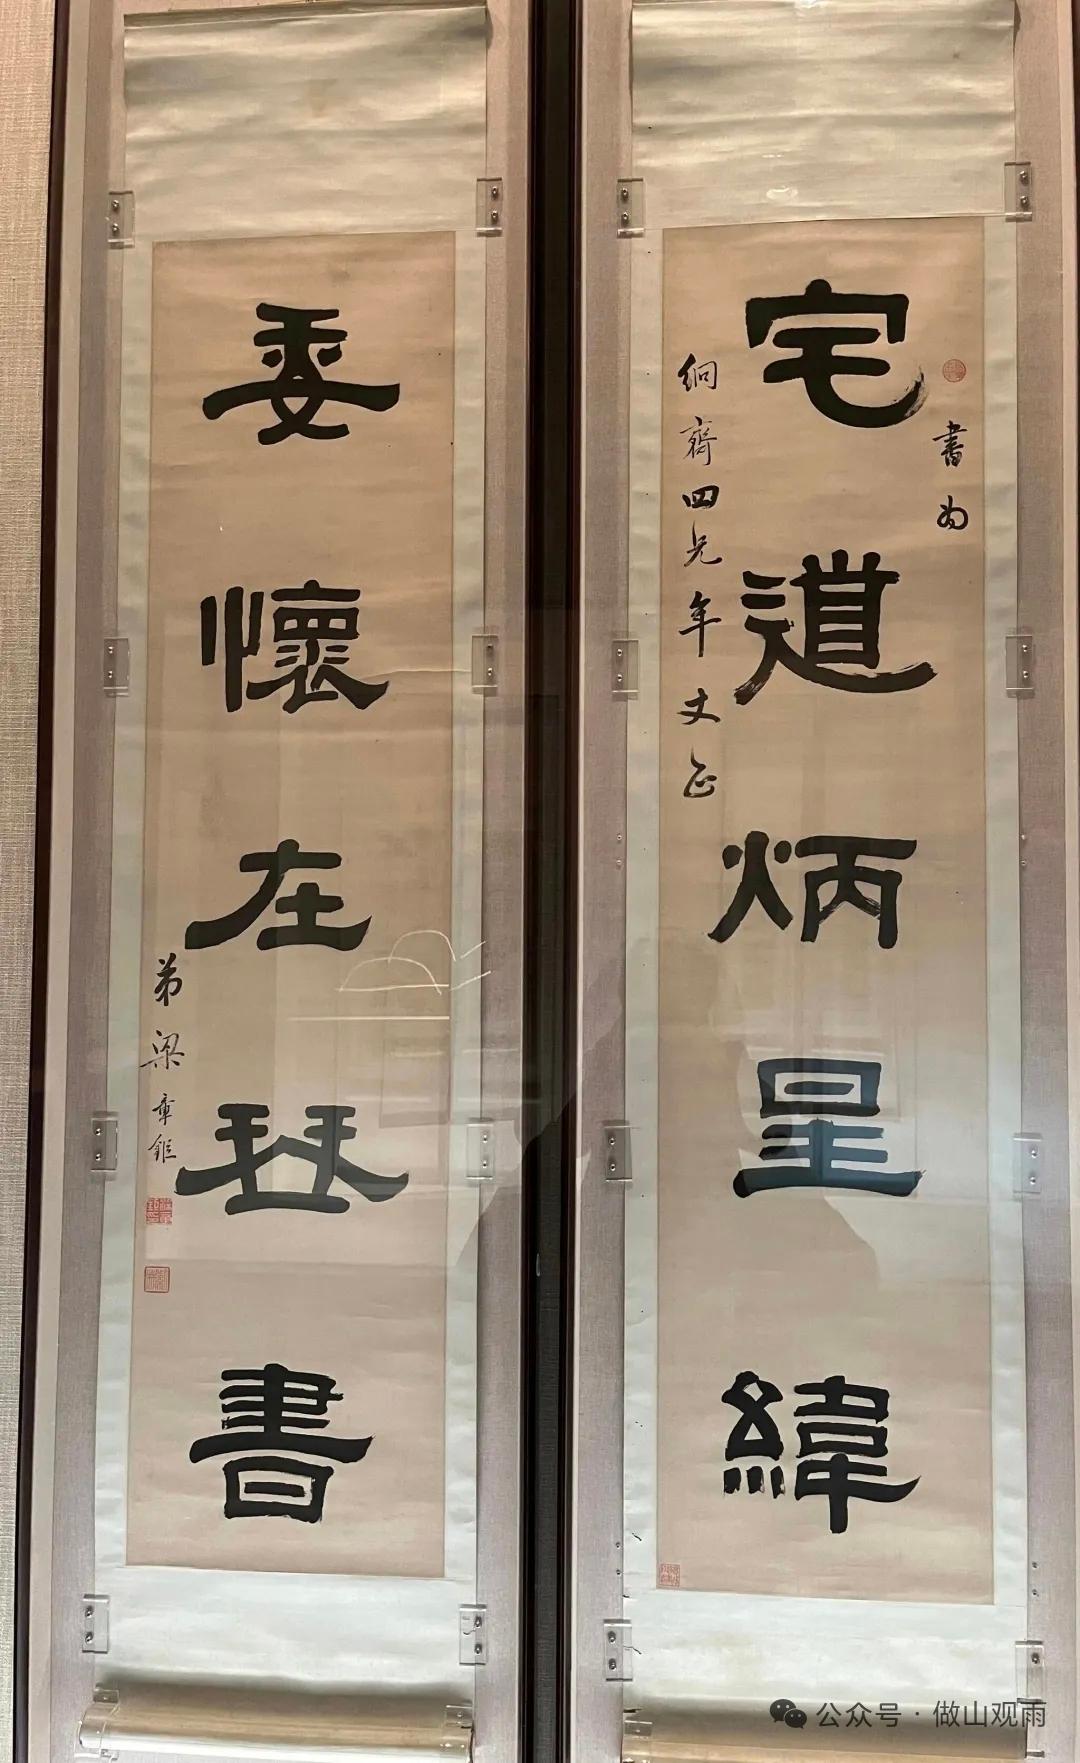 書為
宅道炳星緯
絅齋四兄年丈正
委懷在琴書
弟梁章鉅
公众号·做山观雨